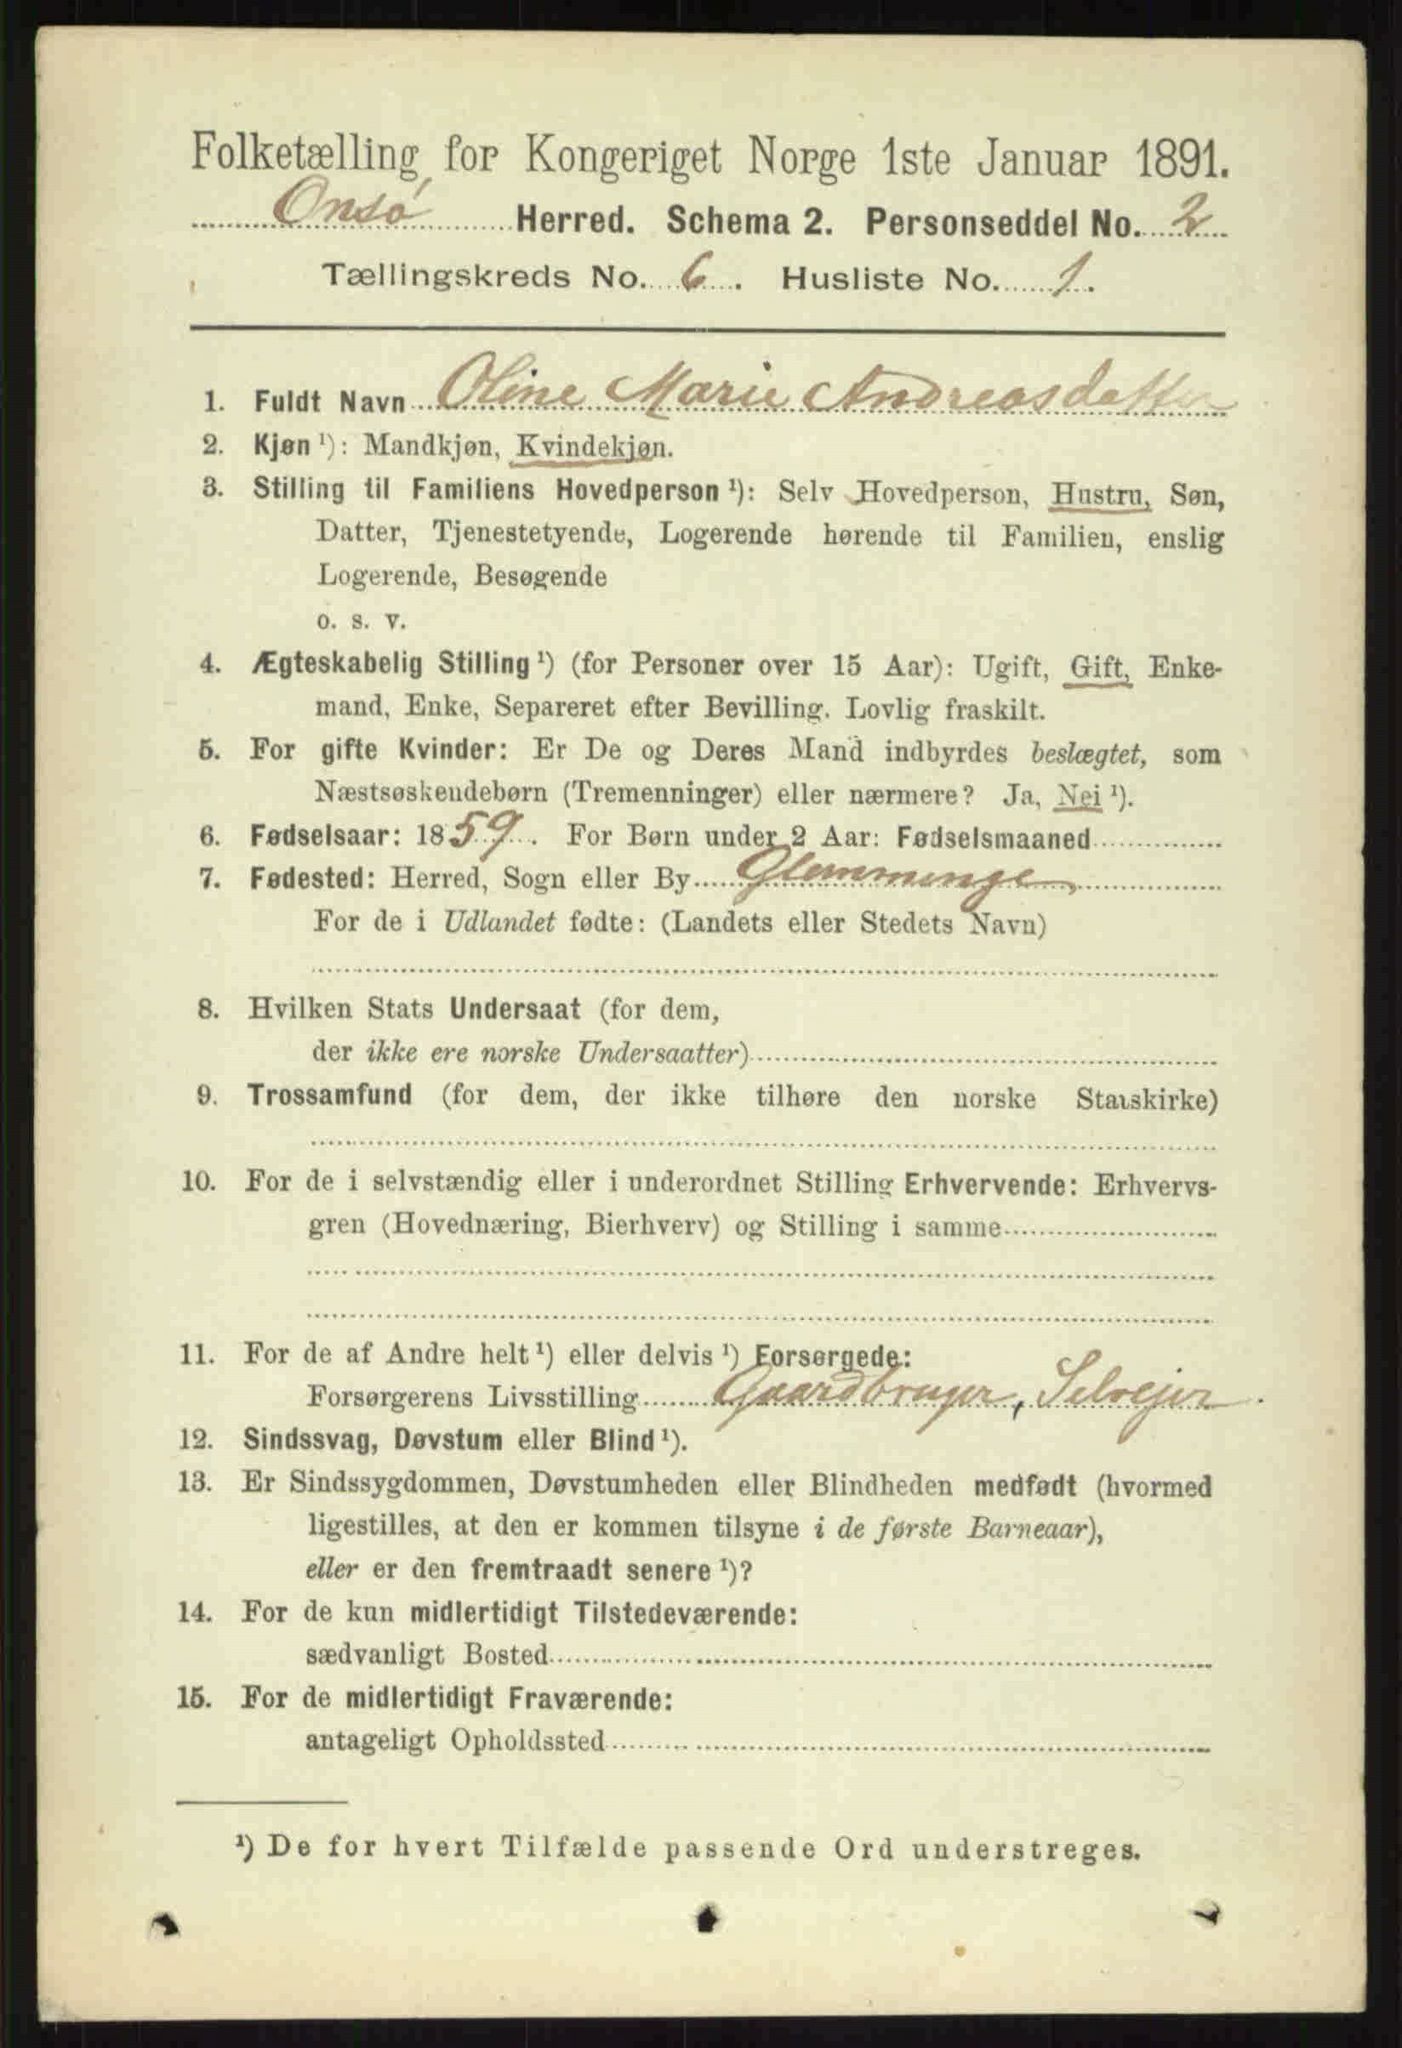 Folketælling for Kongeriget Norge 1ste Januar 1891.
Onsø Herred. Schema 2. Personseddel No. 2
Tællingskreds No. 6. Husliste No. 1.
1. Fuldt Navn Oline Marie Andreasdatter
2. Kjøn ¹): Mandkjøn, Kvindekjøn.
3. Stilling til Familiens Hovedperson ¹): Selv Hovedperson, Hustru, Søn,
Datter, Tjenestetyende, Logerende hørende til Familien, enslig
Logerende, Besøgende
o. s. v.
4. Ægteskabelig Stilling ¹) (for Personer over 15 Aar): Ugift, Gift, Enke-
mand, Enke, Separeret efter Bevilling. Lovlig fraskilt.
5. For gifte Kvinder: Er De og Deres Mand indbyrdes beslægtet, som
Næstsøskendebørn (Tremenninger) eller nærmere? Ja, Nei ¹).
6. Fødselsaar: 1859. For Børn under 2 Aar: Fødselsmaaned
7. Fødested: Herred, Sogn eller By Glemminge
For de i Udlandet fødte: (Landets eller Stedets Navn)
8. Hvilken Stats Undersaat (for dem,
der ikke ere norske Undersaatter)
9. Trossamfund (for dem, der ikke tilhøre den norske Statskirke)
10. For de i selvstændig eller i underordnet Stilling Erhvervende: Erhvervs-
gren (Hovednæring, Bierhverv) og Stilling i samme
11. For de af Andre helt ¹) eller delvis ¹) Forsørgede:
Forsørgerens Livsstilling Gaardbruger, Selvejer.
12. Sindssvag, Døvstum eller Blind ¹).
13. Er Sindssygdommen, Døvstumheden eller Blindheden medfødt (hvormed
ligestilles, at den er kommen tilsyne i de første Barneaar),
eller er den fremtraadt senere ¹)?
14. For de kun midlertidigt Tilstedeværende:
sædvanligt Bosted
15. For de midlertidigt Fraværende:
antageligt Opholdssted
¹) De for hvert Tilfælde passende Ord understreges.